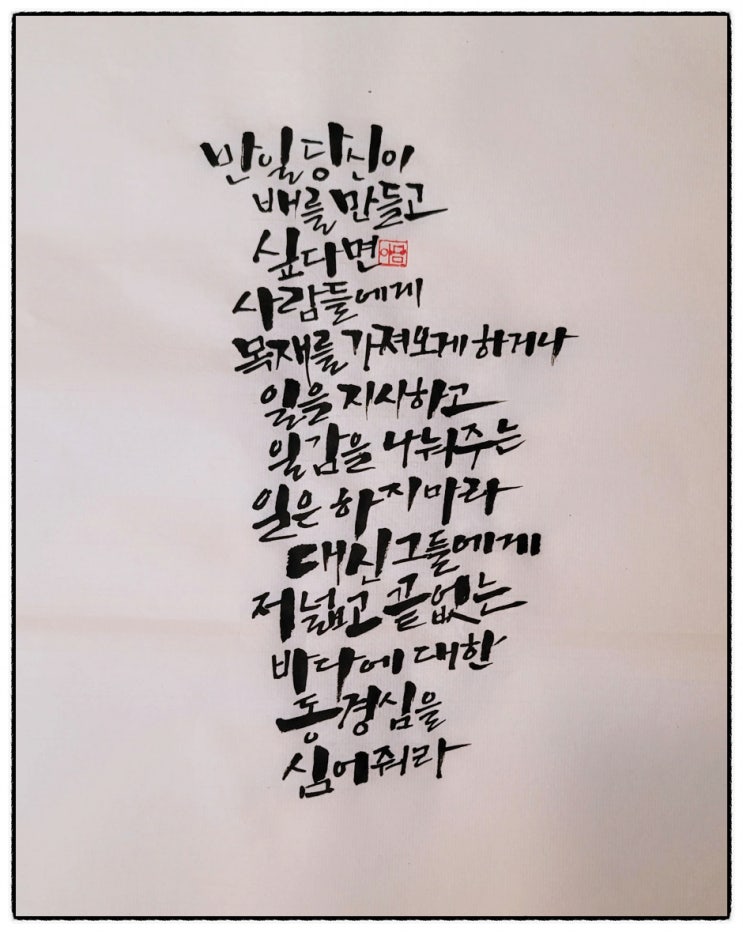 만일 당신이
배를 만들고
싶다면
사람들에게
목재를 가져오게 하거나
일을 지시하고
일감을 나눠주는
일은 하지마라
대신 그들에게
저 넓고 끝없는
바다에 대한
동경심을
심어줘라